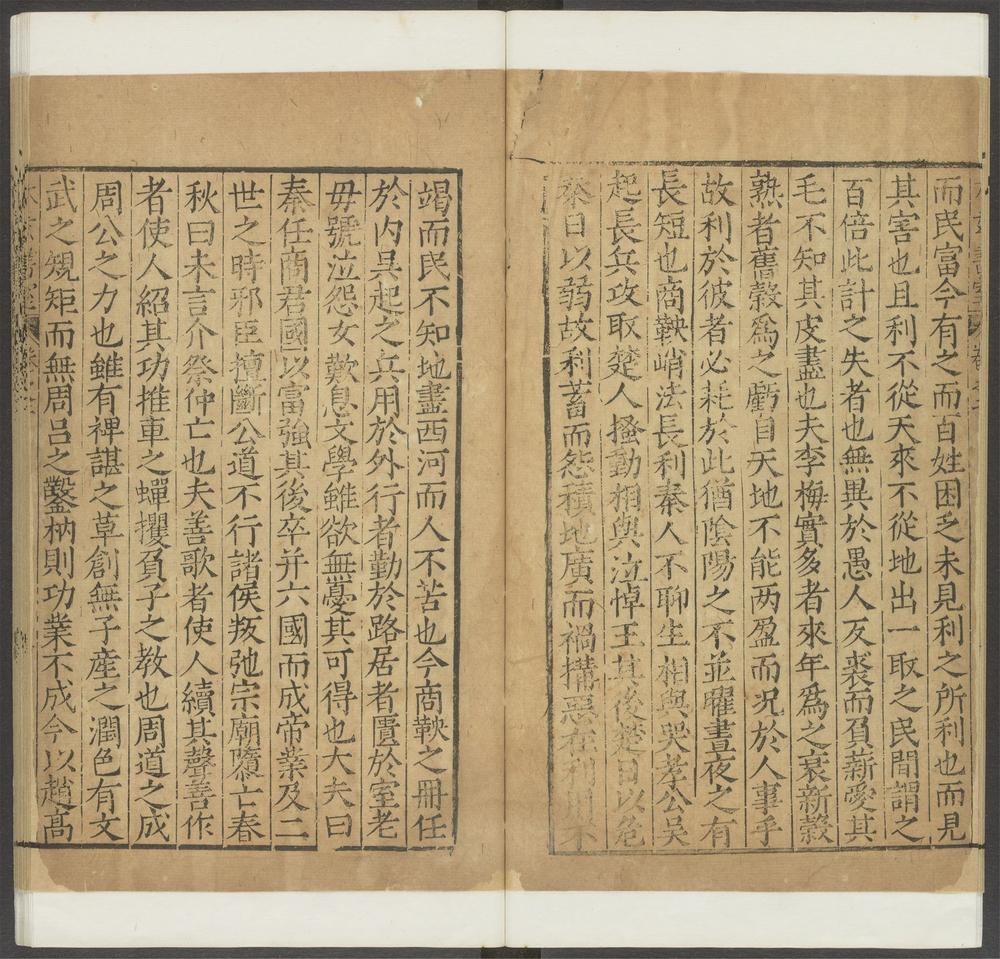 而民富今有之而百姓困乏未見利之所利也而見
其害也且利不從天來不從地出一取之民間謂之
百倍此計之失者也無異於愚人反裘而負薪愛其
毛不知其皮盡也夫李梅實多者來年爲之衰新穀
熟者舊穀爲之虧自天地不能两盈而况於人事乎
故利於彼者必耗於此猶陰陽之不並曜晝夜之有
長短也商鞅峭法長利秦人不聊生相與哭孝公吳
起長兵攻取楚人搔動相與泣悼王其後楚日以危
秦日以弱故利蓄而怨積地廣而禍搆惡在利用不
竭而民不知地盡西河而人不苦也今商鞅之冊任
於内吳起之兵用於外行者勤於路居者匱於室老
毋號泣怨女歎息文學雖欲無憂其可得也大夫曰
秦任商君國以富強其後卒并六國而成帝業及二
世之時邪臣擅斷公道不行諸侯叛弛宗廟隳亡春
秋曰未言介祭仲亡也夫善歌者使人續其聲善作
者使人紹其功推車之蟬攫負子之教也周道之成
周公之力也雖有裨諶之草創無子產之潤色有文
武之䂓矩而無周吕之鑿枘則功業不成今以趙高